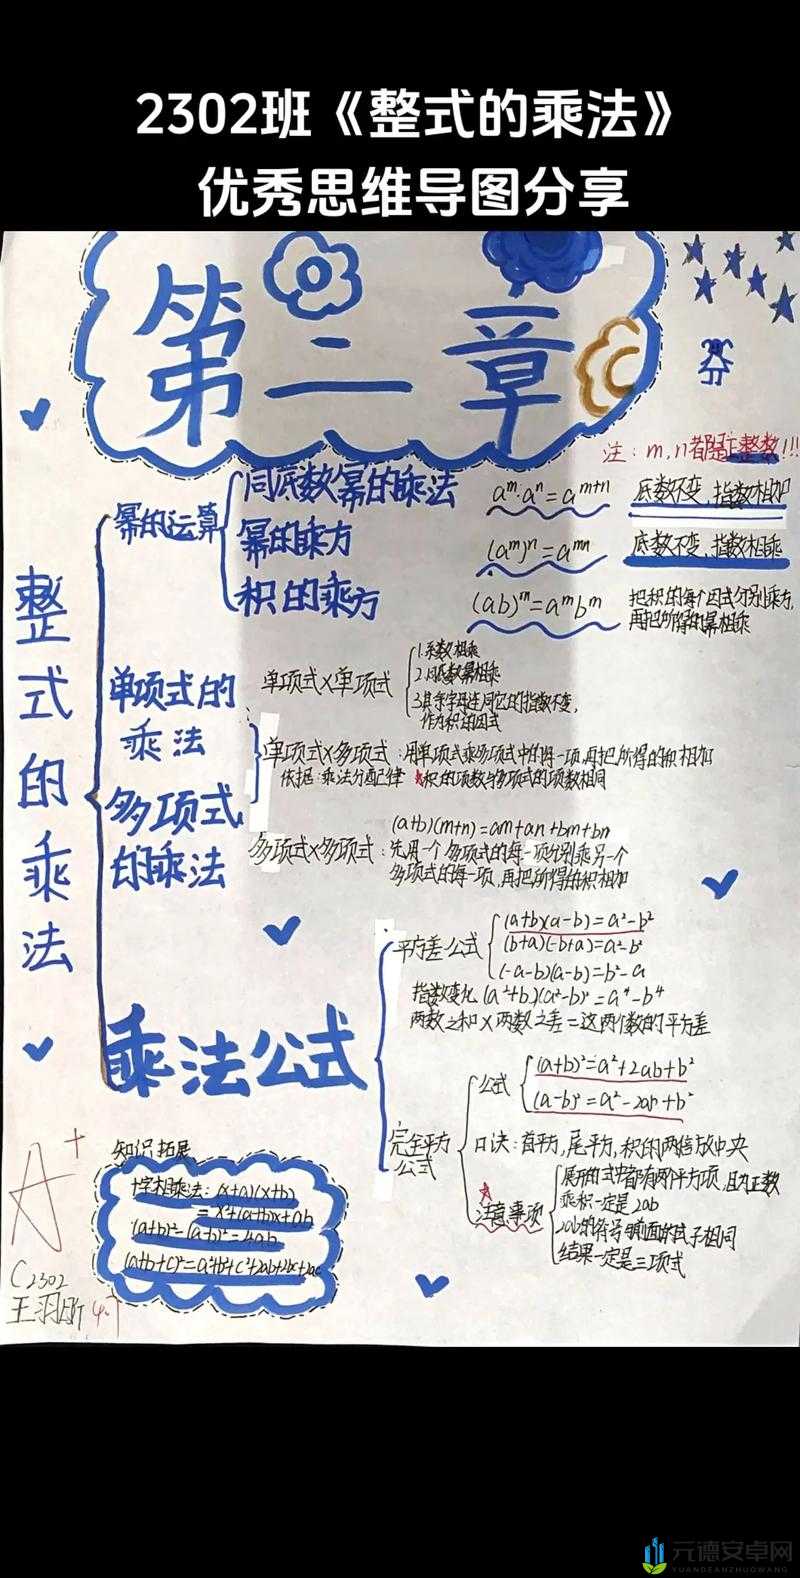 2302班《整式的乘法》
优秀思维导图分享
第二章
注：m,n都是正整数!!!
整式的乘法
幂的运算
同底数幂的乘法 aᵐ·aⁿ=aᵐ⁺ⁿ 底数不变,指数相加
幂的乘方 (aᵐ)ⁿ=aᵐⁿ 底数不变,指数相乘
积的乘方 (ab)ᵐ=aᵐbᵐ 把积的每个因式分别乘方,
再把所得的幂相乘
单项式的
乘法
多项式
的乘法
单项式×单项式
1.系数相乘
2.同底数幂相乘
3.其余字母连同它的指数不变,
作为积的因式
单项式×多项式：用单项式乘多项式中的每一项,再把所得的积相加
依据：乘法分配律 积的项数与多项式的项数相同
(a+b)(m+n)=am+an+bm+bn
多项式×多项式：先用一个多项式的每一项分别乘另一个
多项式的每一项,再把所得的积相加
乘法公式
平方差公式
(a+b)(a-b)=a²-b²
(b+a)(-b+a)=a²-b²
(-a-b)(a-b)=b²-a
指数变化
两数之和×两数之差=这两个数的平方差
完全平方
公式
公式
(a+b)²=a²+2ab+b²
口诀：首平方,尾平方,积的两倍放中央
注意事项
展开的式中都有两个平方项,且为正数
乘积一定是2ab
2ab的符号与前面的式子相同
结果一定是三项式
知识拓展
十字相乘法：(x+a)(x+b)
=x²+(a+b)x+ab
(a+b)²-(a-b)²=4ab
A+
C2302
元德安卓网
YUANDEANZHUOWANG